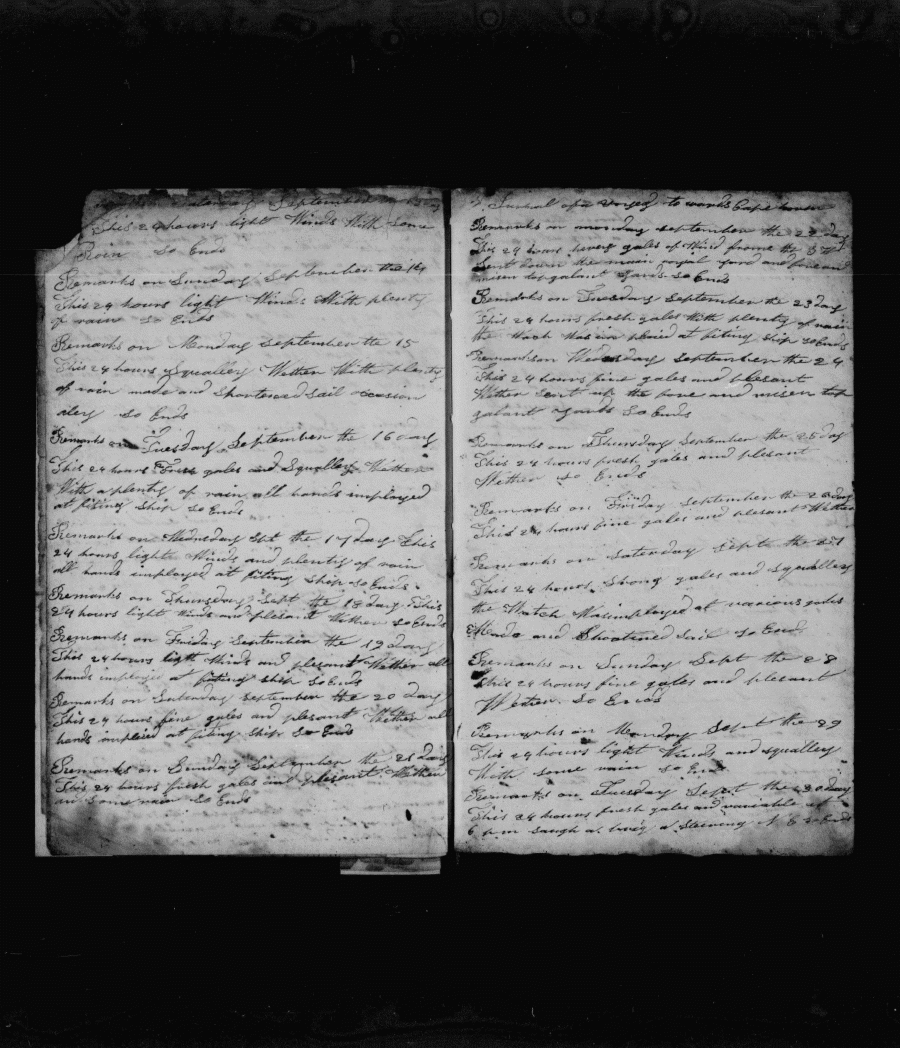 September
This 24 hours light Winds With some
Rain So Ends
Remarks on Sunday September the 14
This 24 hours light Winds With plenty
of rain So Ends
Remarks on Monday September the 15
This 24 hours Squalley Wether With plenty
of rain made and Shortened Sail occasion
aley So Ends
Remarks on Tuesday September the 16 day
This 24 hours gales and Squalley Wether
With a plenty of rain all hands imployed
at fiting Ship So Ends
Remarks on Wednesday Sept the 17 day This
24 hours light Winds and plenty of rain
all hands employed at fiting Ship So Ends
Remarks on Thursday Sept the 18 day This
24 hours light Winds and plesant Wether So Ends
Remarks on Friday September the 19 day
This 24 hours ligth Winds and plesant Wether all
hands imployed at fiting Ship So Ends
Remarks on Saturday September the 20 day
This 24 hours fine gales and plesant Wether all
hands implied at fiting Ship So Ends
Remarks on Sunday September the 21 day
This 24 hours fresh gales and plesant Wether
and Some rain So Ends
of a to wards Cape
Remarks on monday September the 22 day
This 24 hours hevey gales of Wind frome the
Sent down the main royal yard and fore and
misen top galant yards So Ends
Remarks on Tuesday September the 23 day
This 24 hours fresh gales With plenty of rain
the Wach Was implaied at fiting Ship So Ends
Remarks on Wedesday September the 24
This 24 hours fine gales and plesant
Wether Sent up the fore and misen top
galant yards So Ends
Remarks on Thursday September the 25 day
This 24 hours fresh gales and plesant
Wether So Ends
Remarks on Friday September the 26 day
This 24 hours fine gales and plesant Wether
Remarks on Saturday Sept the 27
This 24 hours Strong gales and Squalley
the Watch Was imployed at various
Made and Shortened Sail So Ends
Remarks on Sunday Sept the 28
This 24 hours fine gales and plesant
Wether So Ends
Remarks on Monday Sept the 29
This 24 hours light Winds and Squalley
With Some rain So Ends
Remarks on Tuesday Sept the 30 day
This 24 hours fresh gales and variable at
6 p m a Stearing N E So Ends